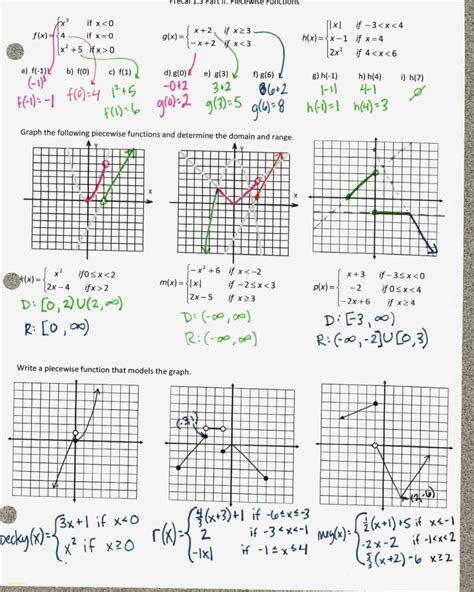 Precal 1.3 Part II: Piecewise Functions
f(x)= { x³ if x<0
4 if x=0
x²+5 if x>0
g(x)= { x+2 if x≥3
-x+2 if x<3
h(x)= { |x| if -3<x<4
x-1 if x=4
2x² if 4<x<6
a) f(-1) b) f(0) c) f(1) d) g(0) e) g(3) f) g(6) g) h(-1) h) h(4) i) h(7)
(-1)³ f(0)=4 1²+5 -0+2 3+2 6+2 |-1| 4-1 Ø
f(-1)=-1 f(1)=6 g(0)=2 g(3)=5 g(6)=8 h(-1)=1 h(4)=3
Graph the following piecewise functions and determine the domain and range.
Y
Y
X
X
k(x)= { x² if 0≤x<2
2x-4 if x>2
m(x)= { -x²+6 if x<-2
|x| if -2≤x<3
2x-5 if x≥3
p(x)= { x+3 if -3≤x<0
-2 if 0≤x<4
-2x+6 if x≥4
D: [0,2)∪(2,∞)
R: [0,∞)
D: (-∞,∞)
R: (-∞,∞)
D: [-3,∞)
R: (-∞,-2]∪[0,3)
Write a piecewise function that models the graph.
(2,-6)
(x)= { 3x+1 if x<0
x² if x≥0
r(x)= { 4/3(x+3)+1 if -6≤x≤-3
2 if -3<x<-1
-|x| if -1≤x≤4
(x)= { 1/2(x+1)+5 if x<-1
-2x-2 if -1<x<2
5/3(x+2)-6 x≥2